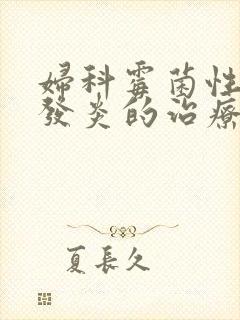 婦科霉菌性
發炎的治療
夏長久